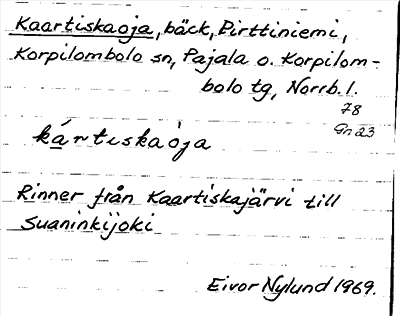 Kaartiskaoja, bäck, Pirttiniemi,
Korpilombolo sn, Pajala o. Korpilom-
bolo tg, Norrb. l.
78
Gn 23
kártiskaòja
Rinner från Kaartiskajärvi till
Suaninkijoki
Eivor Nylund 1969.